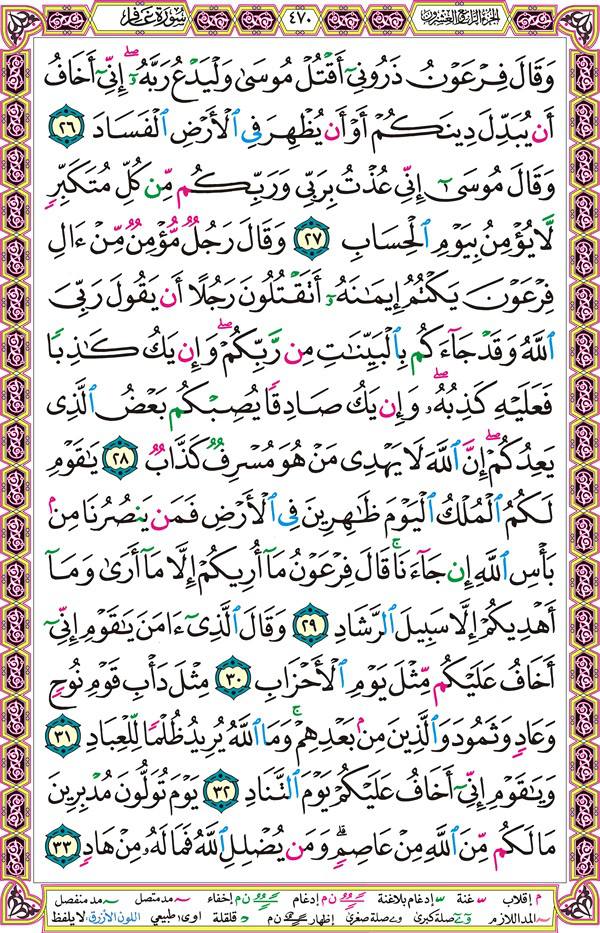 الجزء الرابع والعشرون ٤٧٠ سورة غافر
وَقَالَ فِرْعَوْنُ ذَرُونِيٓ أَقْتُلْ مُوسَىٰ وَلْيَدْعُ رَبَّهُۥٓ ۖ إِنِّيٓ أَخَافُ
أَن يُبَدِّلَ دِينَكُمْ أَوْ أَن يُظْهِرَ فِي ٱلْأَرْضِ ٱلْفَسَادَ ٢٦
وَقَالَ مُوسَىٰٓ إِنِّي عُذْتُ بِرَبِّي وَرَبِّكُم مِّن كُلِّ مُتَكَبِّرٍ
لَّا يُؤْمِنُ بِيَوْمِ ٱلْحِسَابِ ٢٧ وَقَالَ رَجُلٌ مُّؤْمِنٌ مِّنْ ءَالِ
فِرْعَوْنَ يَكْتُمُ إِيمَٰنَهُۥٓ أَتَقْتُلُونَ رَجُلًا أَن يَقُولَ رَبِّيَ
ٱللَّهُ وَقَدْ جَآءَكُم بِٱلْبَيِّنَٰتِ مِن رَّبِّكُمْ ۖ وَإِن يَكُ كَٰذِبًا
فَعَلَيْهِ كَذِبُهُۥ ۖ وَإِن يَكُ صَادِقًا يُصِبْكُم بَعْضُ ٱلَّذِي
يَعِدُكُمْ ۖ إِنَّ ٱللَّهَ لَا يَهْدِي مَنْ هُوَ مُسْرِفٌ كَذَّابٌ ٢٨ يَٰقَوْمِ
لَكُمُ ٱلْمُلْكُ ٱلْيَوْمَ ظَٰهِرِينَ فِي ٱلْأَرْضِ فَمَن يَنصُرُنَا مِنۢ
بَأْسِ ٱللَّهِ إِن جَآءَنَا ۚ قَالَ فِرْعَوْنُ مَآ أُرِيكُمْ إِلَّا مَآ أَرَىٰ وَمَآ
أَهْدِيكُمْ إِلَّا سَبِيلَ ٱلرَّشَادِ ٢٩ وَقَالَ ٱلَّذِيٓ ءَامَنَ يَٰقَوْمِ إِنِّيٓ
أَخَافُ عَلَيْكُم مِّثْلَ يَوْمِ ٱلْأَحْزَابِ ٣٠ مِثْلَ دَأْبِ قَوْمِ نُوحٍ
وَعَادٍ وَثَمُودَ وَٱلَّذِينَ مِنۢ بَعْدِهِمْ ۚ وَمَا ٱللَّهُ يُرِيدُ ظُلْمًا لِّلْعِبَادِ ٣١
وَيَٰقَوْمِ إِنِّيٓ أَخَافُ عَلَيْكُمْ يَوْمَ ٱلتَّنَادِ ٣٢ يَوْمَ تُوَلُّونَ مُدْبِرِينَ
مَا لَكُم مِّنَ ٱللَّهِ مِنْ عَاصِمٍ ۗ وَمَن يُضْلِلِ ٱللَّهُ فَمَا لَهُۥ مِنْ هَادٍ ٣٣
م إقلاب غنة إدغام بلاغنة ن م إدغام ن م إخفاء مد متصل مد منفصل
المد اللازم صلة كبرى صلة صغرى إظهار ن م قلقلة اوى طبيعي اللون الأزرق: لا يلفظ